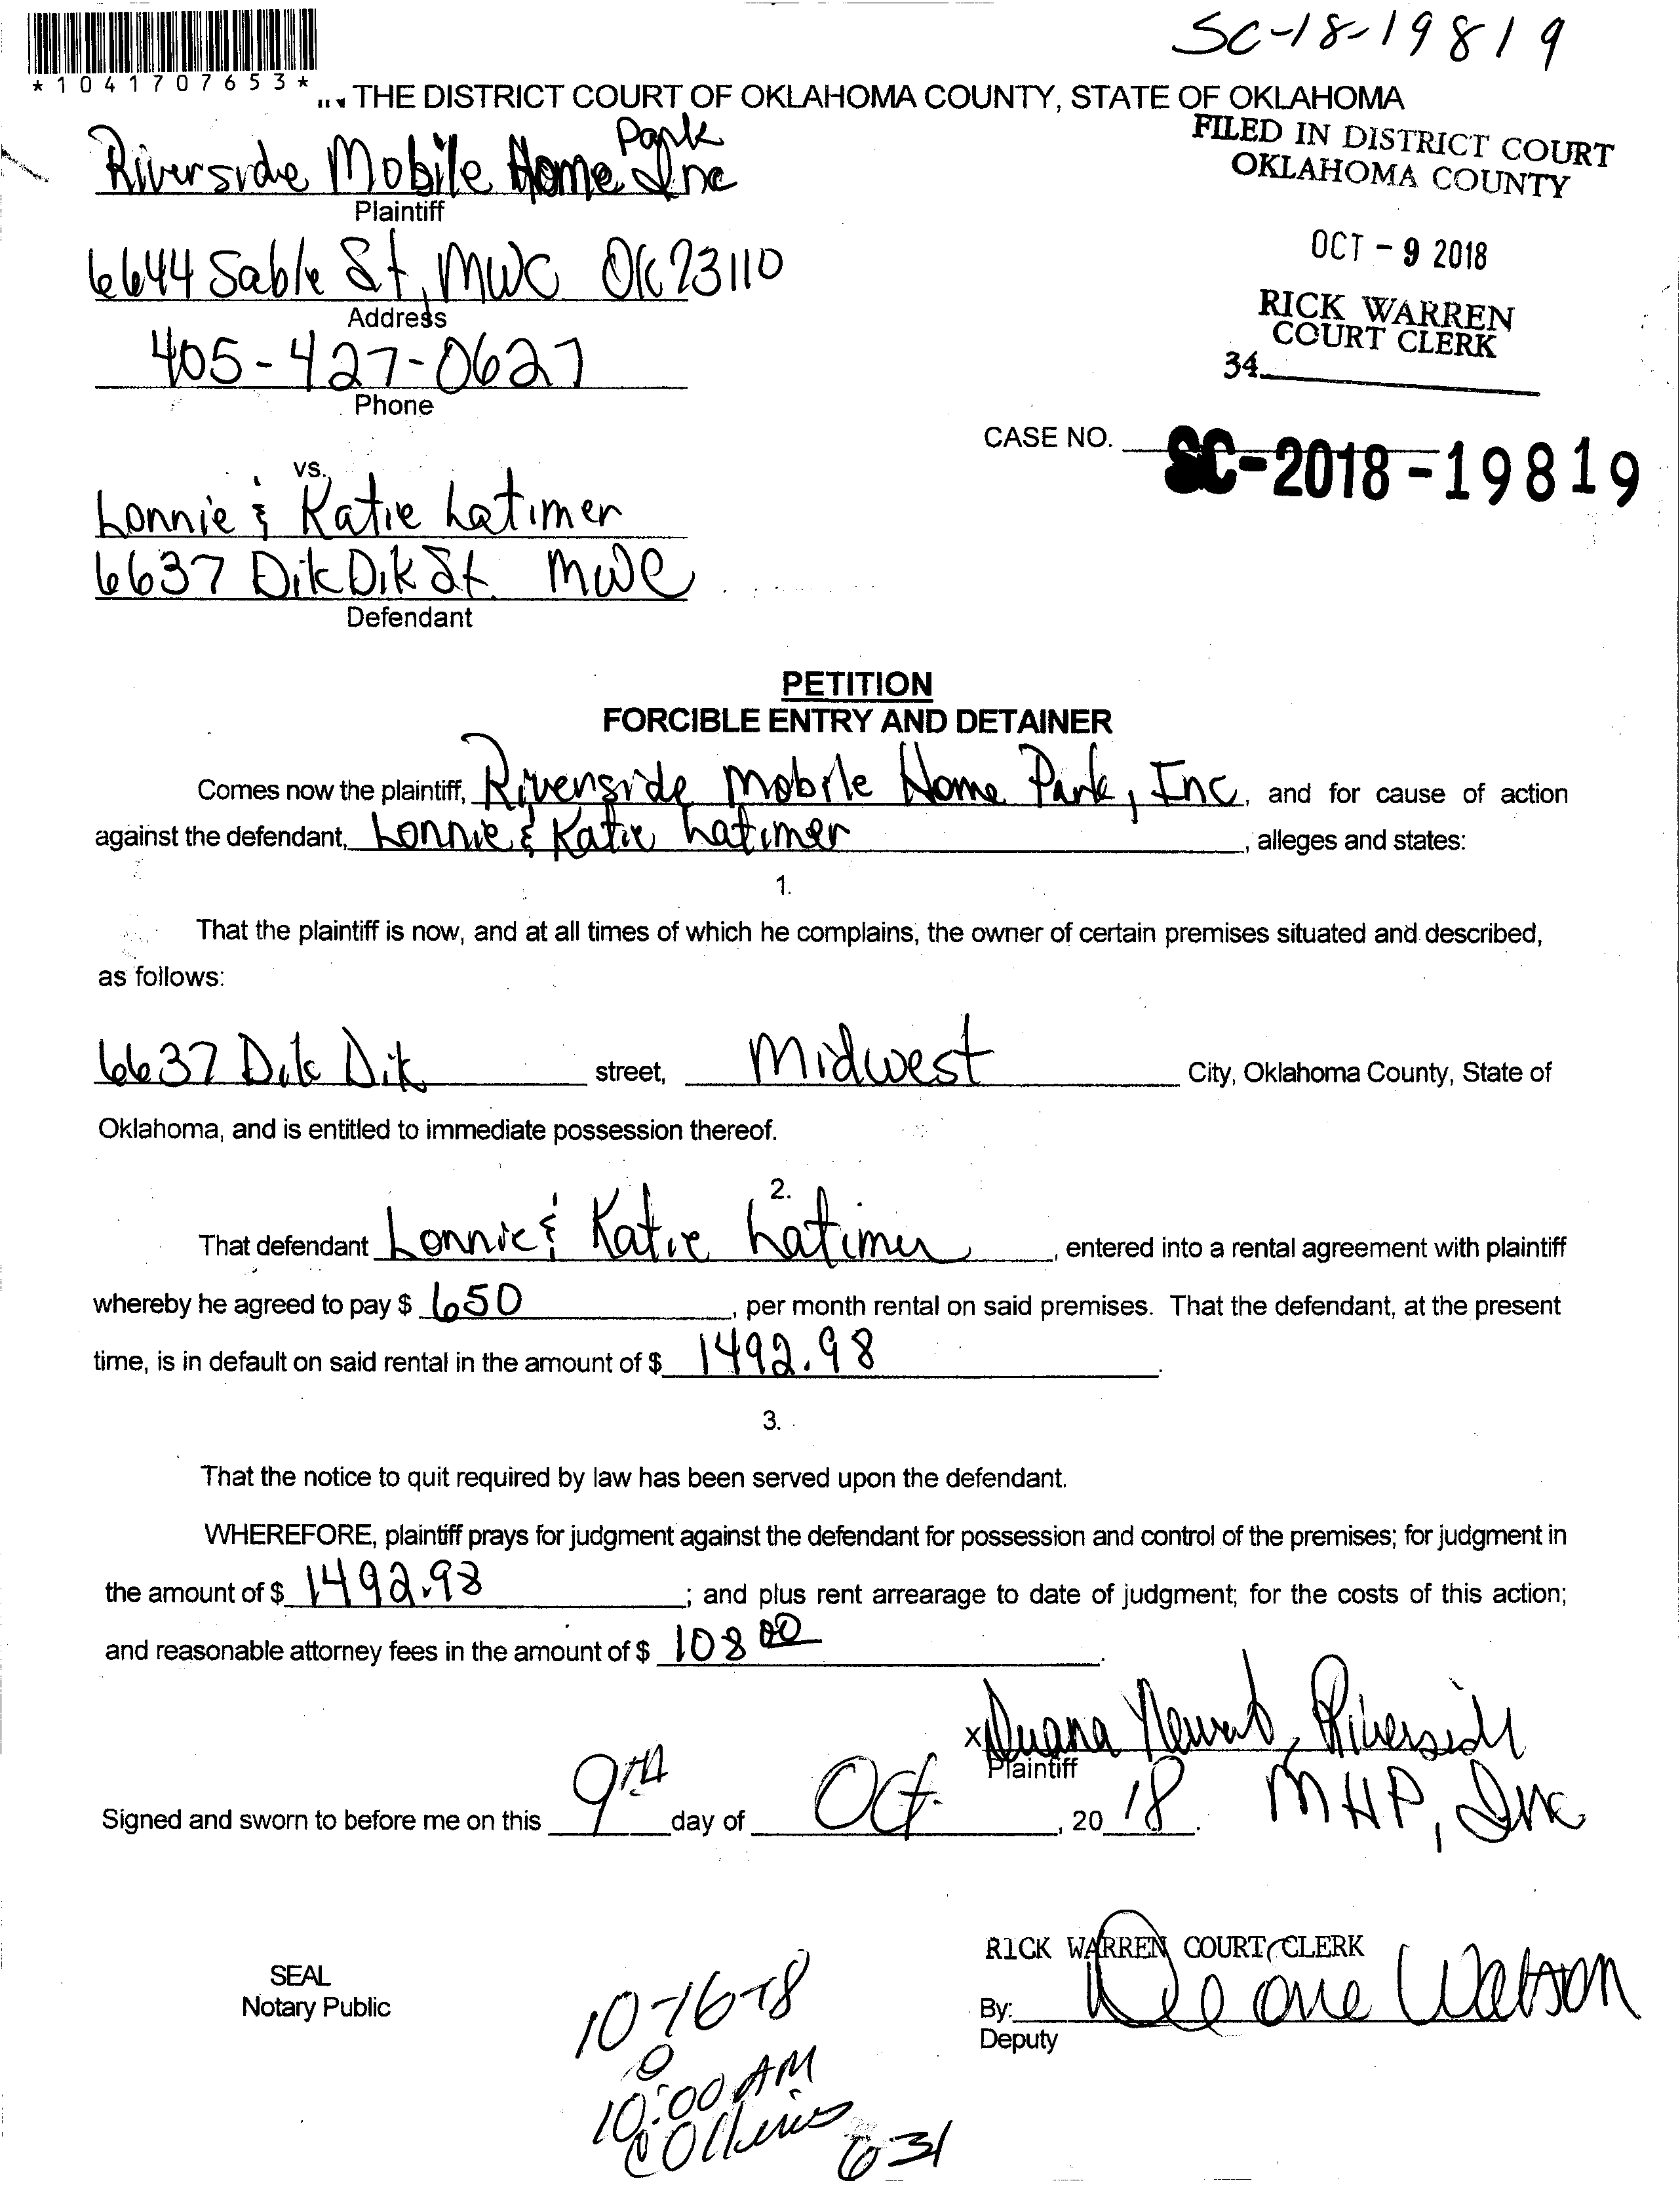 SC-18-19819
*1041707653*
THE DISTRICT COURT OF OKLAHOMA COUNTY, STATE OF OKLAHOMA
FILED IN DISTRICT COURT
OKLAHOMA COUNTY
Park
Riverside Mobile Home Inc
Plaintiff
OCT - 9 2018
6644 Sable St, MWC OK 73110
Address
RICK WARREN
COURT CLERK
34.
405-427-0627
Phone
CASE NO. SC-2018-19819
vs.
Lonnie & Katie Latimer
6637 Dik Dik St. MWC
Defendant
PETITION
FORCIBLE ENTRY AND DETAINER
Comes now the plaintiff, Riverside Mobile Home Park, Inc., and for cause of action
against the defendant, Lonnie & Katie Latimer, alleges and states:
1.
That the plaintiff is now, and at all times of which he complains, the owner of certain premises situated and described,
as follows:
6637 Dik Dik street, Midwest City, Oklahoma County, State of
Oklahoma, and is entitled to immediate possession thereof.
2.
That defendant Lonnie & Katie Latimer, entered into a rental agreement with plaintiff
whereby he agreed to pay $ 650, per month rental on said premises. That the defendant, at the present
time, is in default on said rental in the amount of $ 1492.98.
3.
That the notice to quit required by law has been served upon the defendant.
WHEREFORE, plaintiff prays for judgment against the defendant for possession and control of the premises; for judgment in
the amount of $ 1492.98; and plus rent arrearage to date of judgment; for the costs of this action;
and reasonable attorney fees in the amount of $ 108 00.
x Duana Newsub, Riverside
Plaintiff
MHP, Inc
Signed and sworn to before me on this 9th day of Oct., 2018.
RICK WARREN COURT CLERK
SEAL
Notary Public
By: Watson
Deputy
10-16-18
@
10:00 AM
Collins
631